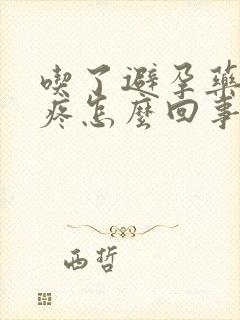 喫了避孕藥
疼怎麼回事
西哲